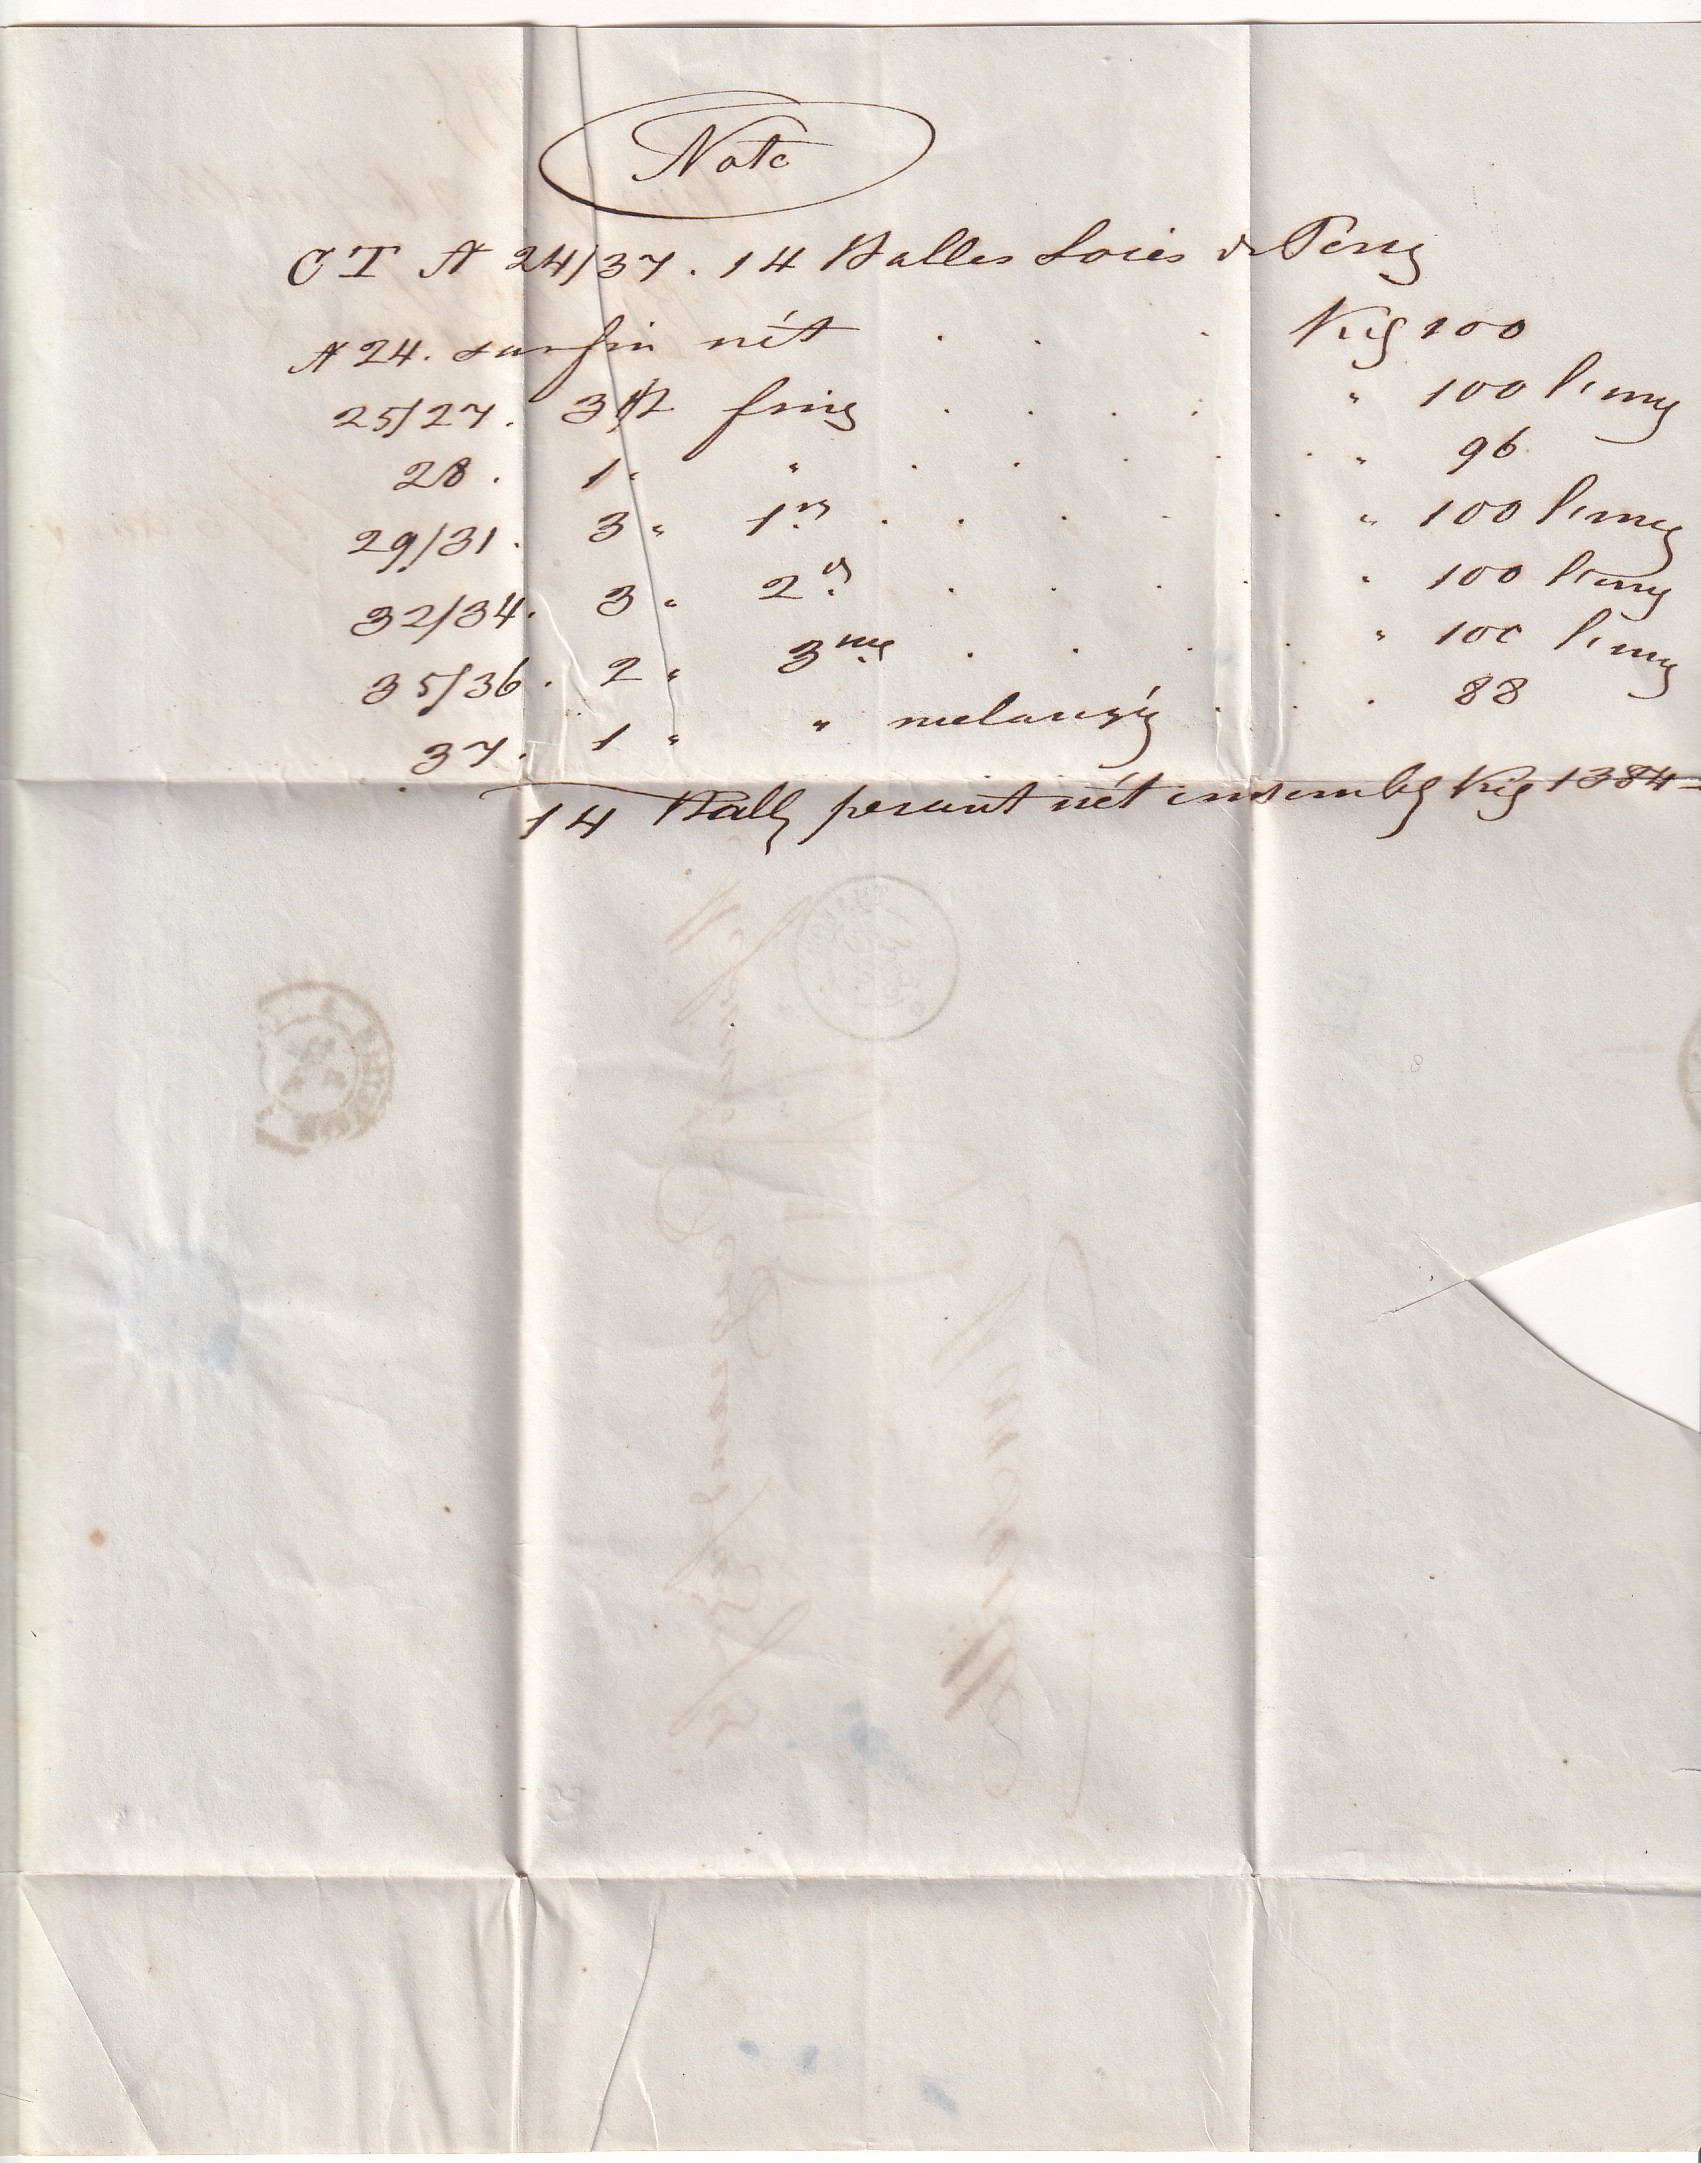 Note
C T N 24/37. 14 Balles Soies de Perse
N 24. surfin nét . . . Kig 100
25/27. 3 B/ fine . . . . " 100 l'une
28. 1 " " . . . . . " 96
29/31. 3 " 1re . . . . . " 100 l'une
32/34. 3 " 2e . . . . " 100 l'une
35/36. 2 " 3me . . . . " 100 l'une
37. 1 " " melangée . . . 88
14 Balles pesant nét ensemble Kig 1384